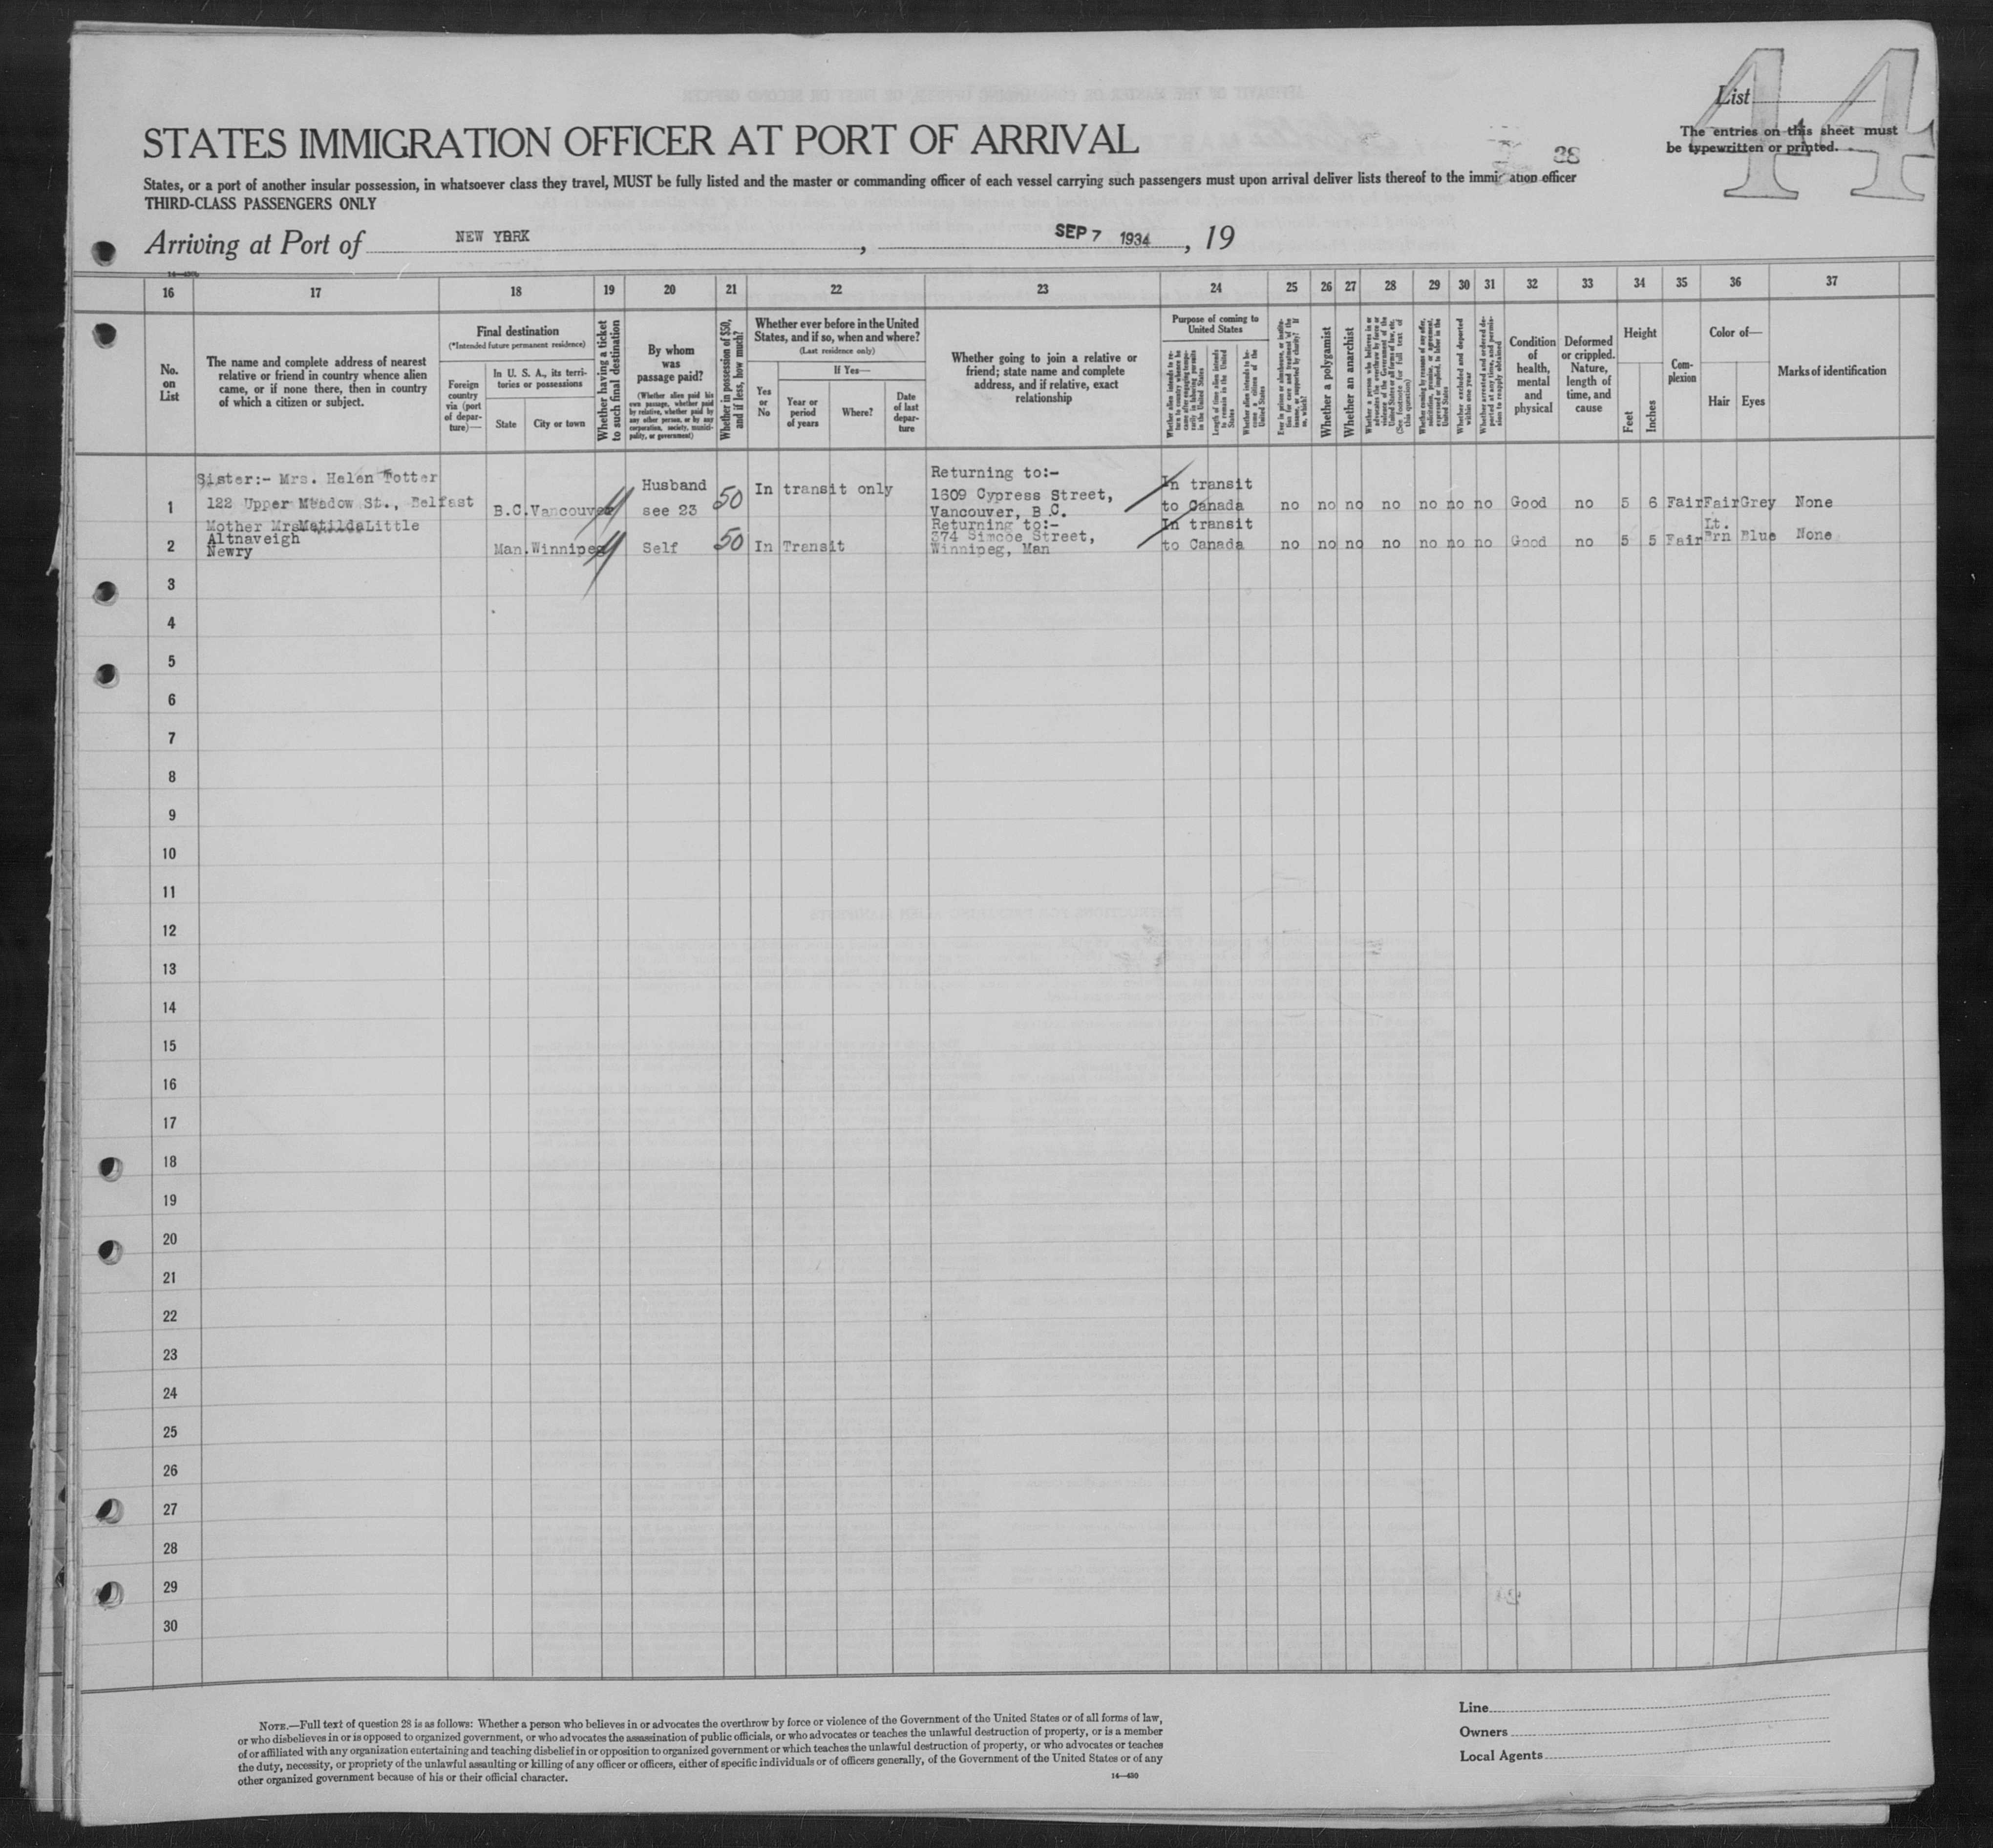 List
44
STATES IMMIGRATION OFFICER AT PORT OF ARRIVAL
The entries on this sheet must
be typewritten or printed.
38
States, or a port of another insular possession, in whatsoever class they travel, MUST be fully listed and the master or commanding officer of each vessel carrying such passengers must upon arrival deliver lists thereof to the immigration officer
THIRD-CLASS PASSENGERS ONLY
Arriving at Port of NEW YORK, SEP 7 1934, 19
16 17 18 19 20 21 22 23 24 25 26 27 28 29 30 31 32 33 34 35 36 37
No.
on
List
The name and complete address of nearest
relative or friend in country whence alien
came, or if none there, then in country
of which a citizen or subject.
Final destination
(*Intended future permanent residence)
Foreign
country
via (port
of depar-
ture)—
In U. S. A., its terri-
tories or possessions
State
City or town
Whether having a ticket
to such final destination
By whom
was
passage paid?
(Whether alien paid his
own passage, whether paid
by relative, whether paid by
any other person, or by any
corporation, society, munici-
pality, or government)
Whether in possession of $50,
and if less, how much?
Whether ever before in the United
States, and if so, when and where?
(Last residence only)
Yes
or
No
If Yes—
Year or
period
of years
Where?
Date
of last
depar-
ture
Whether going to join a relative or
friend; state name and complete
address, and if relative, exact
relationship
Purpose of coming to
United States
Length of time alien intends
to remain in the United
States
Whether alien intends to be-
come a citizen of the
United States
Whether a polygamist
Whether an anarchist
Condition
of
health,
mental
and
physical
Deformed
or crippled.
Nature,
length of
time, and
cause
Height
Feet
Inches
Com-
plexion
Color of—
Hair
Eyes
Marks of identification
1
Sister:- Mrs. Helen Totter
122 Upper Meadow St., Belfast
B.C. Vancouver
Husband
see 23
50
In transit only
Returning to:-
1609 Cypress Street,
Vancouver, B.C.
In transit
to Canada
no no no no no no no Good no 5 6 Fair Fair Grey None
2
Mother Mrs Matilda Little
Altnaveigh
Newry
Man. Winnipeg
Self
50
In Transit
Returning to:-
374 Simcoe Street,
Winnipeg, Man
In transit
to Canada
no no no no no no no Good no 5 5 Fair Lt. Brn Blue None
3
4
5
6
7
8
9
10
11
12
13
14
15
16
17
18
19
20
21
22
23
24
25
26
27
28
29
30
NOTE.—Full text of question 28 is as follows: Whether a person who believes in or advocates the overthrow by force or violence of the Government of the United States or of all forms of law,
or who disbelieves in or is opposed to organized government, or who advocates the assassination of public officials, or who advocates or teaches the unlawful destruction of property, or is a member
of or affiliated with any organization entertaining and teaching disbelief in or opposition to organized government or which teaches the unlawful destruction of property, or who advocates or teaches
the duty, necessity, or propriety of the unlawful assaulting or killing of any officer or officers, either of specific individuals or of officers generally, of the Government of the United States or of any
other organized government because of his or their official character.
14—430
Line
Owners
Local Agents